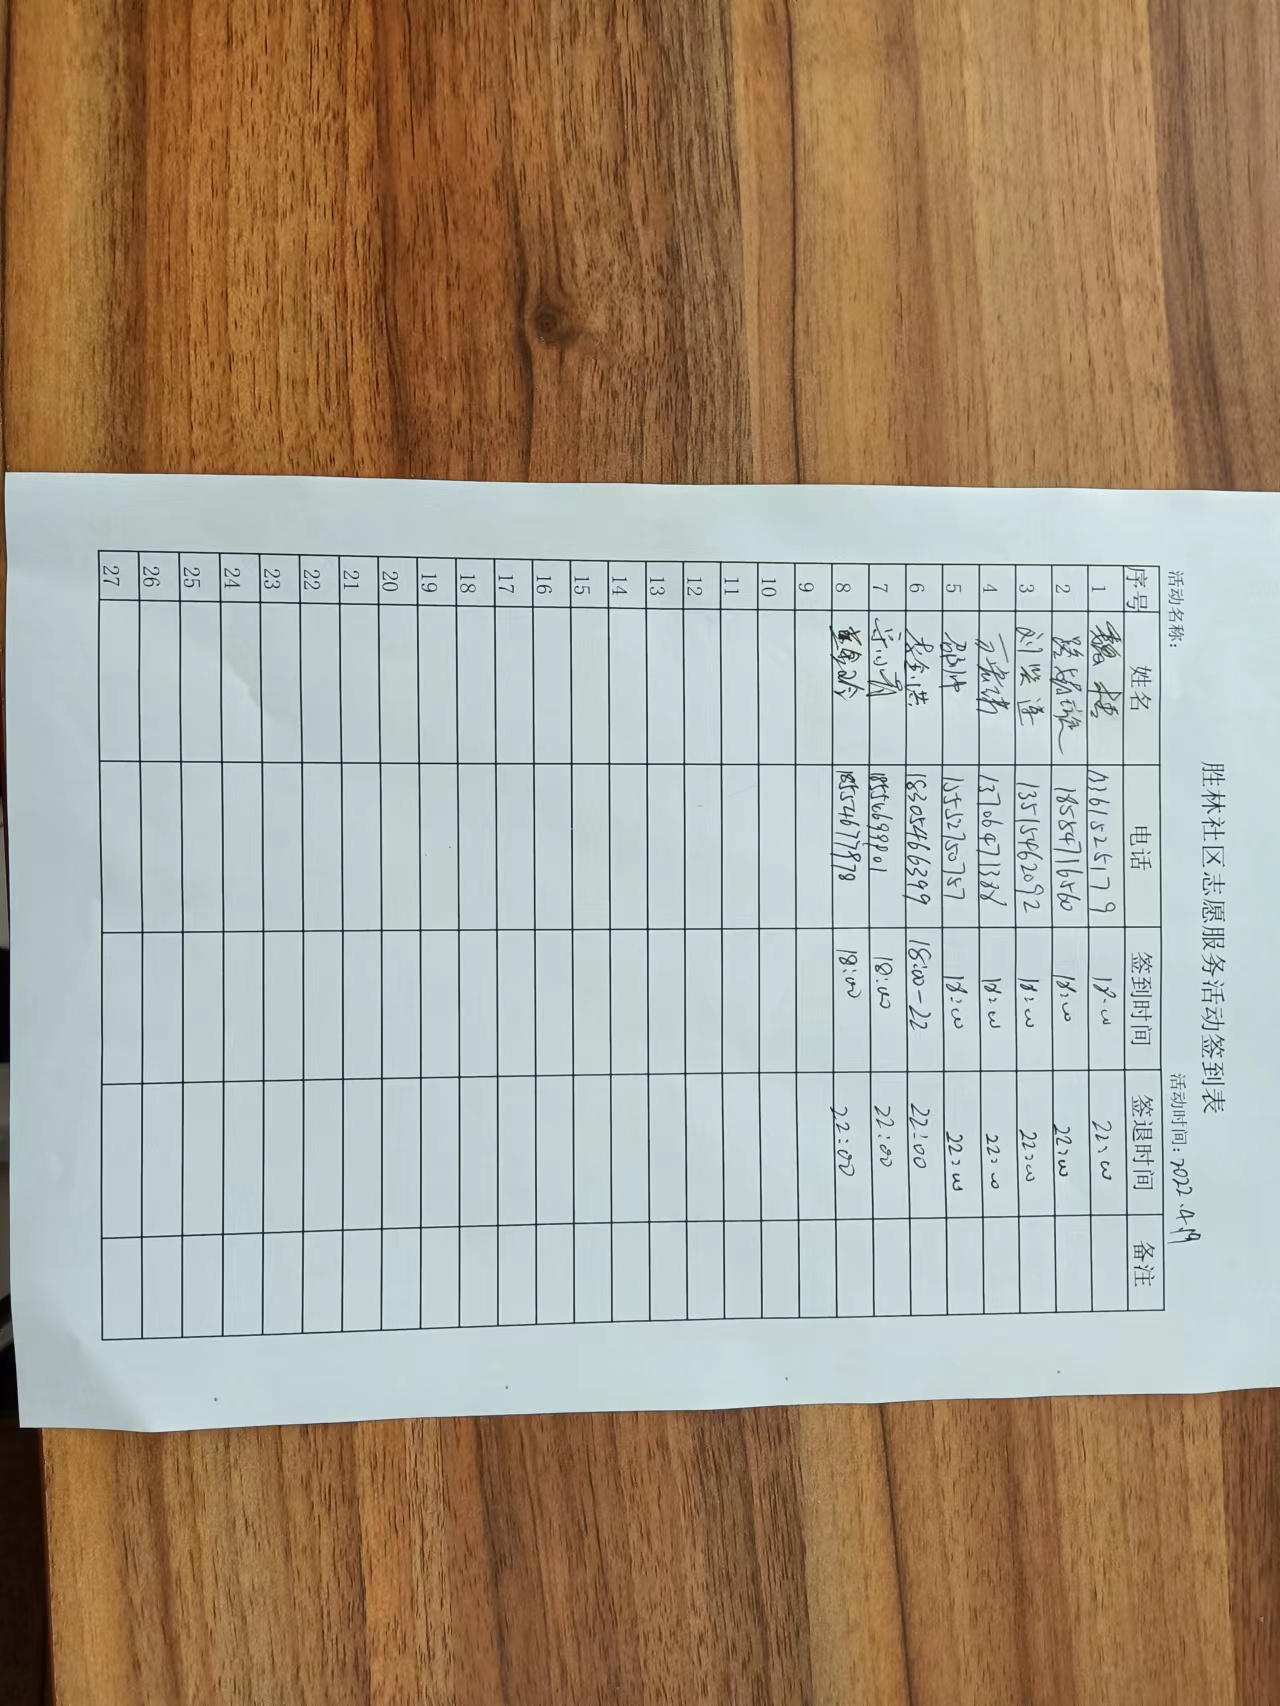 胜林社区志愿服务活动签到表
活动名称: 活动时间: 2022.4.19
序号 姓名 电话 签到时间 签退时间 备注
1 魏 13615252179 18:00 22:00
2 18554716560 18:00 22:00
3 刘 13515462092 18:00 22:00
4 18:00 22:00
5 18:00 22:00
6 18305466399 18:00-22 22:00
7 18:00 22:00
8 18554677878 18:00 22:00
9
10
11
12
13
14
15
16
17
18
19
20
21
22
23
24
25
26
27